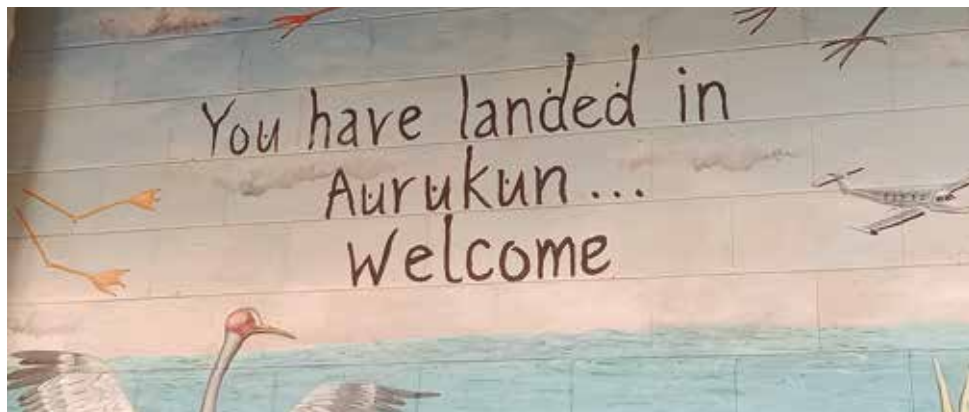 You have landed in
Aurukun...
Welcome